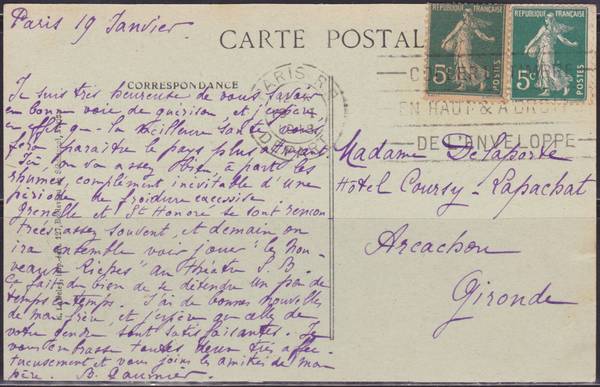 Paris 19 Janvier
CARTE POSTALE
CORRESPONDANCE
REPUBLIQUE FRANÇAISE
5c
POSTES
REPUBLIQUE FRANÇAISE
5c
POSTES
PARIS R.P
EN HAUT & A DROITE
DE L'ENVELOPPE
Je suis très heureuse de vous savoir
en bonne voie de guérison et j'espère
en effet que la meilleure santé vous
fera paraître le pays plus attrayant.
Ici on va assez bien à part les
rhumes, complément inévitable d'une
période de froidure excessive
Grenelle et St Honoré se sont rencon
trées assez souvent, et demain on
ira ensemble voir jouer "les Nou-
veaux Riches" au théâtre S. B.
Ça fait du bien de se détendre un peu de
temps en temps. J'ai de bonnes nouvelles
de mon frère, et j'espère que celles de
votre gendre sont satisfaisantes. Je
vous embrasse toutes deux très affec
tueusement et vous joins les amitiés de mon
père. B.
Madame Delaporte
Hôtel Coursy - Lapachat
Arcachon
Gironde